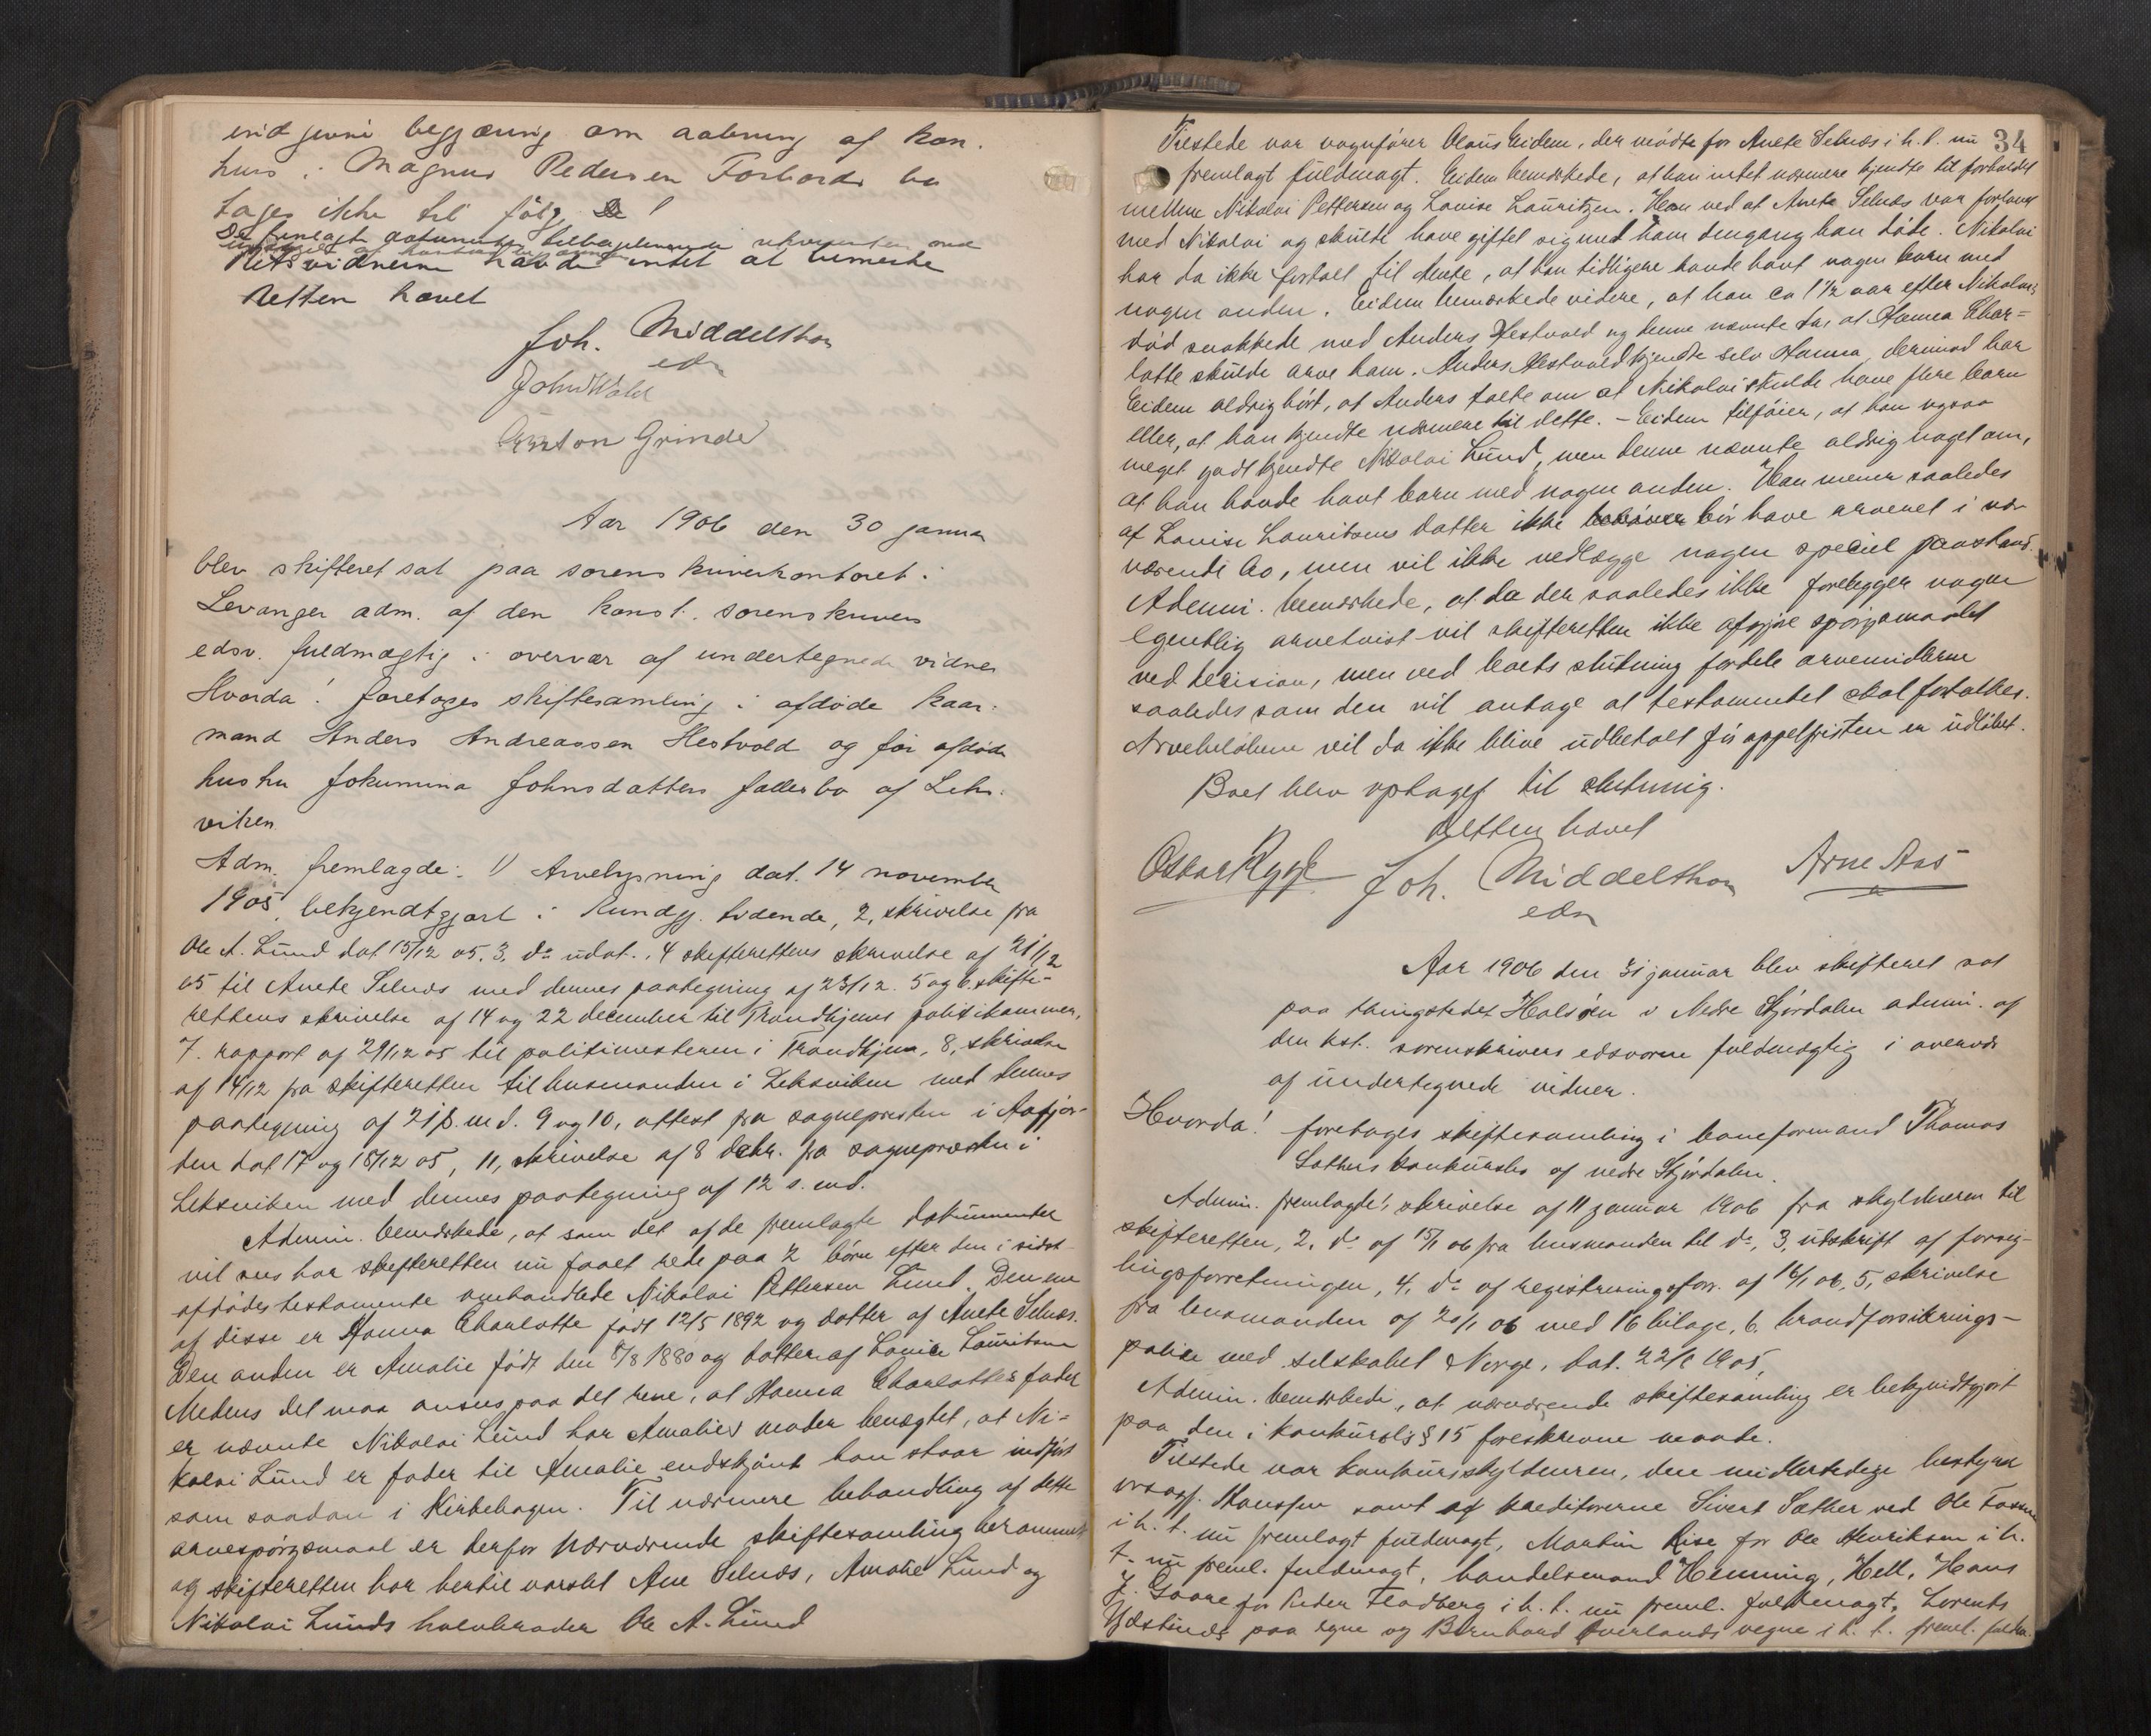 indgivne begjæring om aabning af kon-
kurs i Magnus Pedersen Forbords bo
tages ikke til følge
De fremlagte dokumenter
Retsvidnerne havde intet at bemerke
Retten hævet
Joh. Middelthon
eds
John Wold
Anton Grinde
Aar 1906 den 30 januar
blev skifteret sat paa sorenskriverkontoret i
Levanger adm. af den konst. sorenskrivers
edsv. fuldmægtig i overvær af undertegnede vidner
Hvorda! foretages skiftesamling i afdøde kaar-
mand Anders Andreassen Hestvold og før afdøde
hustru Jokumina Johnsdatters fællesbo af Leks-
viken
Adm. fremlagde: 1) Arvelysning dat. 14 november
1905, bekjendtgjort i Kundgj. tidende, 2, skrivelse fra
Ole A. Lund dat 15/12 05. 3, do udat., 4 skifterettens skrivelse af 21/12
05 til Anete Selnæs med dennes paategning af 23/12. 5 og 6. skifte-
rettens skrivelse af 14 og 22 december til Trondhjems politikammer,
7. rapport af 29/12 05 til politimesteren i Trondhjem, 8, skrivelse
af 14/12 fra skifteretten til lensmanden i Leksviken med dennes
paategning af 21 s. md. 9 og 10, attest fra sognepresten i Aafjor-
den dat 17 og 18/12 05, 11, skrivelse af 8 decbr. fra sognepresten i
Leksviken med dennes paategning af 12 s. md.
Admin. bemærkede, at som det af de fremlagte dokumenter
vil sees har skifteretten nu faaet rede paa 2 børn efter den i sidst-
afdødes testamente omhandlede Nikolai Pettersen Lund. Den ene
af disse er Hanna Charlotte født 12/5 1892 og datter af Anete Selnæs.
Den anden er Amalie født den 5/8 1880 og datter af Lovise Lauritsen
Medens det maa ansees paa det rene, at Hanna Charlottes fader
er nævnte Nikolai Lund har Amalies moder benægtet, at Ni-
kolai Lund er fader til Amalie endskjønt han staar indført
som saadan i Kirkebogen. Til nærmere behandling af dette
arvespørgsmaal er derfor nærværende skiftesamling berammet
og skifteretten har hertil varslet Ane Selnæs, Amalie Lund og
Nikolai Lunds halvbroder Ole A. Lund
34
Tilstede var vognfører Olaus Eidem, der mødte for Anete Selnæs i h. t. nu
fremlagt fuldmagt. Eidem bemærkede, at han intet nærmere kjendte til forholdet
mellem Nikolai Pettersen og Lovise Lauritzen. Han ved at Anete Selnæs var forlovet
med Nikolai og skulde have giftet sig med ham dengang han døde. Nikolai
har da ikke fortalt til Anete, at han tidligere havde havt nogen barn med
nogen anden. Eidem bemærkede videre, at han ca 1 1/2 aar efter Nikolais
død snakkede med Anders Hestvold og denne nævnte da, at Hanna Char-
lotte skulde arve ham. Anders Hestvold kjendte selv Hanna, derimod har
Eidem aldrig hørt, at Anders talte om at Nikolai skulde have flere barn
eller, at han kjendte nærmere til dette. - Eidem tilføier, at han ogsaa
meget godt kjendte Nikolai Lund, men denne nævnte aldrig noget om,
at han havde havt barn med nogen anden. Han mener saaledes
at Lovise Lauritsens datter ikke bør have arveret i nær-
værende bo, men vil ikke nedlægge nogen speciel paastand.
Admin. bemærkede, at da der saaledes ikke foreligger nogen
egentlig arvetvist vil skifteretten ikke afgjøre spørgsmaalet
ved decision, men ved boets slutning fordele arvemidlerne
saaledes som den vil antage at testamentet skal fortolkes.
Arvebeløbene vil da ikke blive udbetalt før appelfristen er udløbet.
Boet blev optaget til slutning.
Retten hævet
Oskar Rygg Joh. Middelthon Arne Aas
eds
Aar 1906 den 31 januar blev skifteret sat
paa thingstedet Halsøen i Nedre Stjørdalen admin. af
den kst. sorenskrivers edsvorne fuldmægtig i overvær
af undertegnede vidner.
Hvorda! foretages skiftesamling i baneformand Thomas
Sæthers konkursbo af nedre Stjørdalen.
Admin. fremlagde 1, skrivelse af 11 januar 1906 fra skyldneren til
skifteretten, 2, do af 15/1 06 fra lensmanden til do, 3, udskrift af forseg-
lingsforretningen, 4, do af registreringsforr. af 16/1 06, 5, skrivelse
fra lensmanden af 20/1 06 med 16 bilage, 6. brandforsikrings-
polise med selskabet Norge, dat. 22/8 1905.
Admin. bemærkede, at nærværende skiftesamling er bekjendtgjort
paa den i konkursls § 15 foreskrevne maade.
Tilstede var konkursskyldneren, den midlertidige bestyrer
ovrsagf. Hanssen samt af kreditorerne Sivert Sæther ved Ole
i h. t. nu fremlagt fuldmagt, Martin Rise for Ole Henriksen i h.
t. nu freml. fuldmagt, handelsmand Henning, Hell, Hans
J. Gaare for Peder Fladberg i h. t. nu freml. fuldmagt, Lorents
paa egne og Bernhard Øverlands vegne i h. t. freml. fuldm.